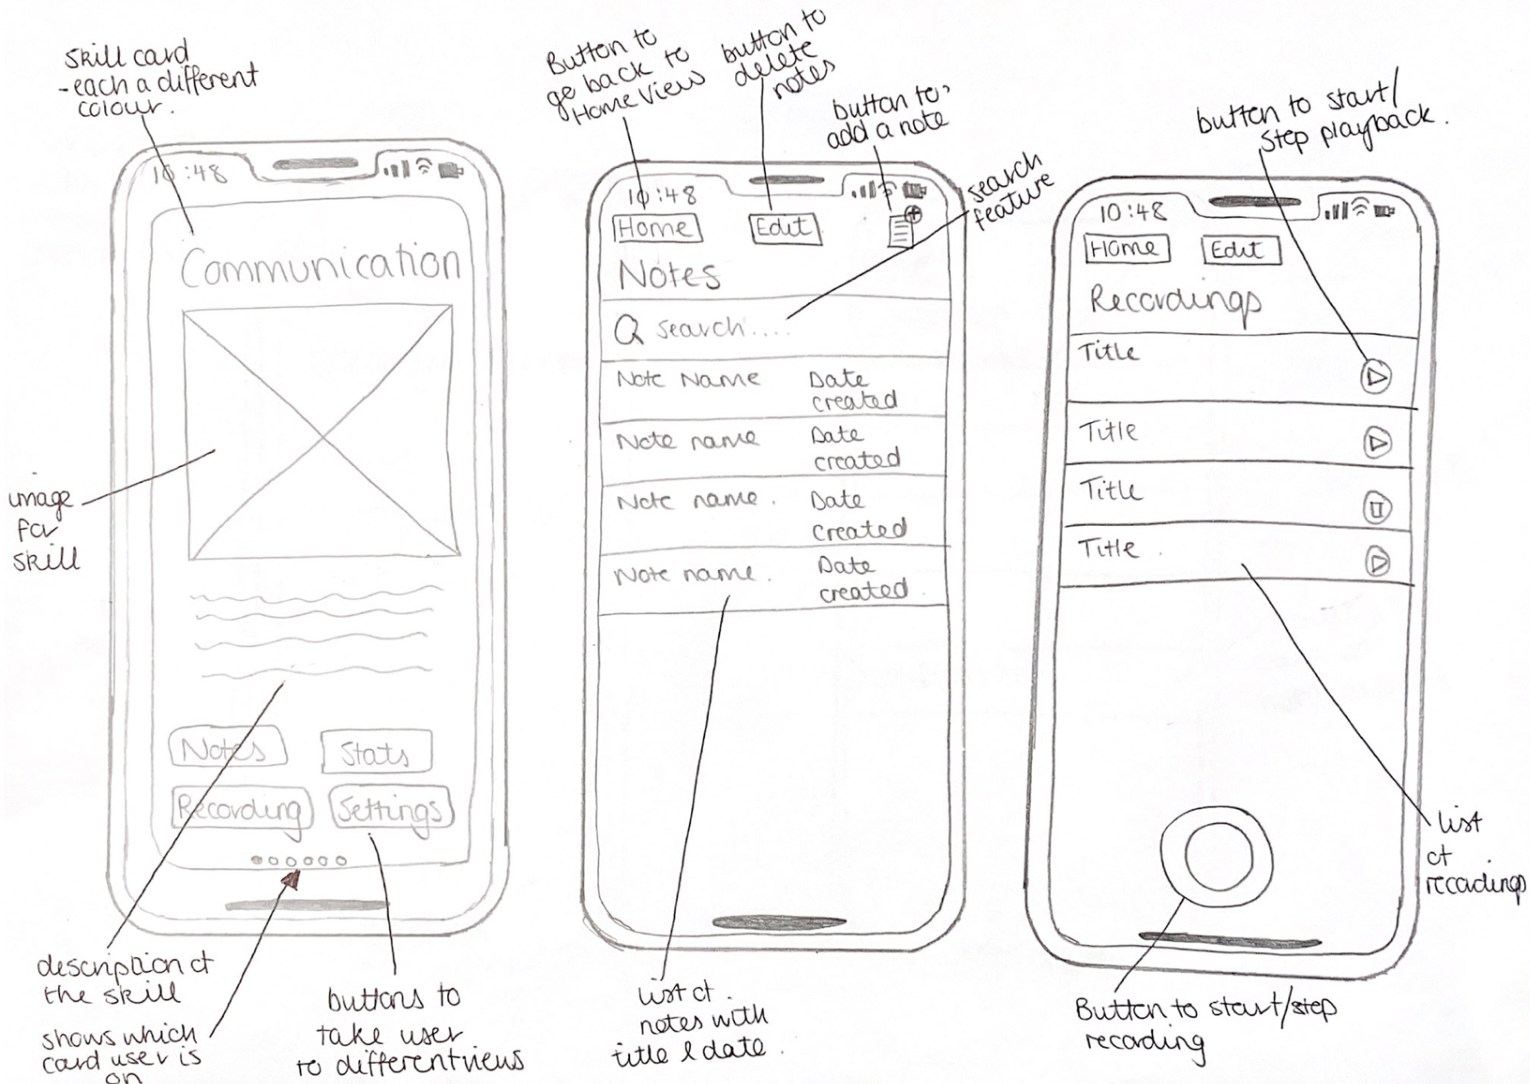 skill card
- each a different
colour.
10:48
Communication
image
for
skill
Notes
Stats
Recording
Settings
description of
the skill
shows which
card user is
on
buttons to
take user
to different views
Button to
go back to
Home View
button to
delete
notes
button to
add a note
search
feature
10:48
Home
Edit
Notes
search....
Note Name
Date
created
Note name
Date
created
Note name.
Date
created
Note name.
Date
created
list of
notes with
title & date
button to start/
stop playback.
10:48
Home
Edit
Recordings
Title
Title
Title
Title
list
of
recordings
Button to start/stop
recording